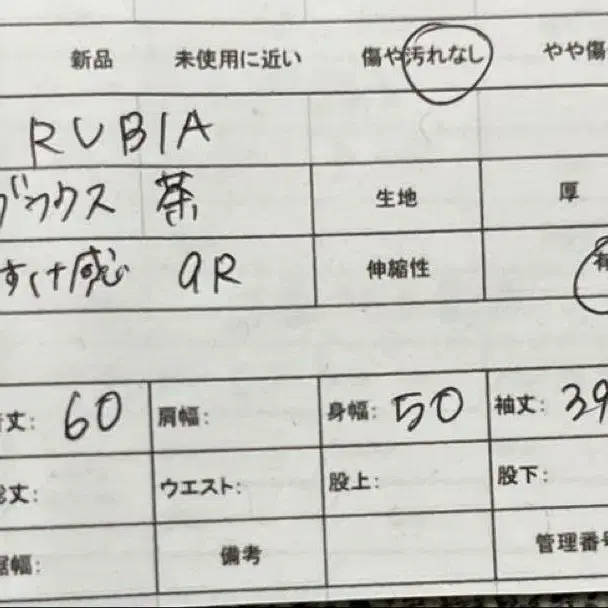 新品 未使用に近い 傷や汚れなし やや傷
RUBIA
茶 生地 厚
すけ感 aR 伸縮性
丈: 60 肩幅: 身幅: 50 袖丈: 39
丈: ウエスト: 股上: 股下:
裾幅: 備考 管理番号